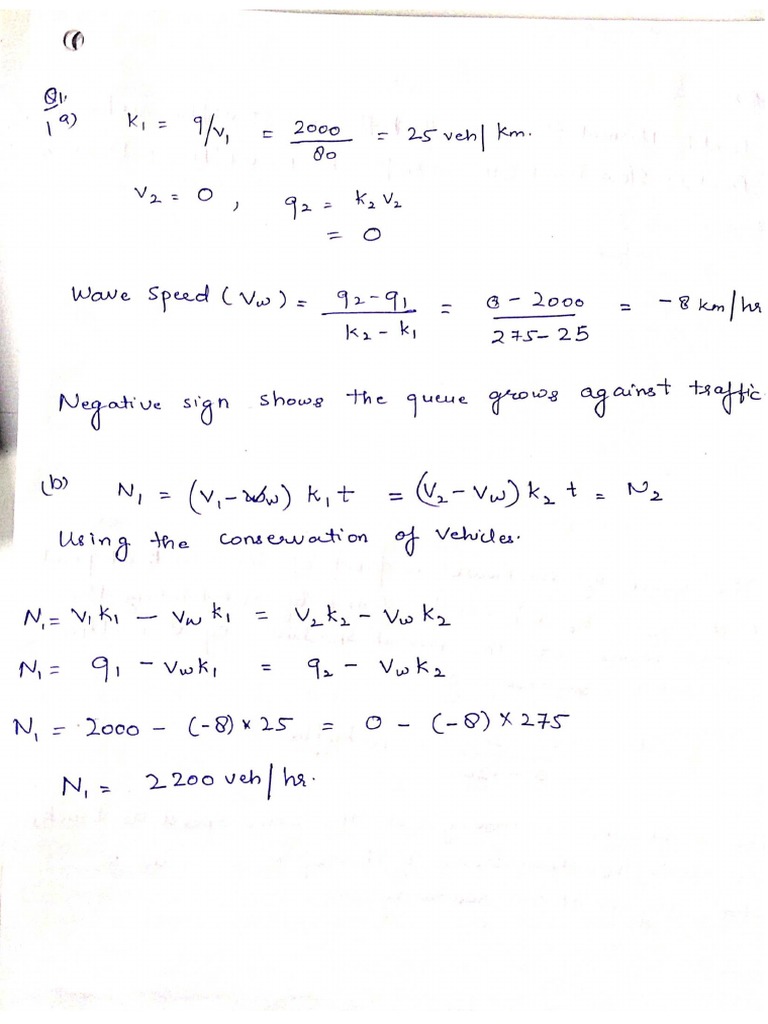 Q1.
1 a) K₁ = q/v₁ = 2000/80 = 25 veh/km.
V₂ = 0 , q₂ = k₂ V₂
= 0
Wave Speed (Vw) = q₂-q₁/k₂-k₁ = 0 - 2000/275-25 = -8 km/hr
Negative sign shows the queue grows against traffic.
(b) N₁ = (V₁-Vw) K₁t = (V₂ - Vw) k₂ t = N₂
Using the conservation of vehicles.
N₁ = V₁k₁ - Vw k₁ = V₂k₂ - Vw k₂
N₁ = q₁ - Vwk₁ = q₂ - Vwk₂
N₁ = 2000 - (-8) × 25 = 0 - (-8) × 275
N₁ = 2200 veh/hr.